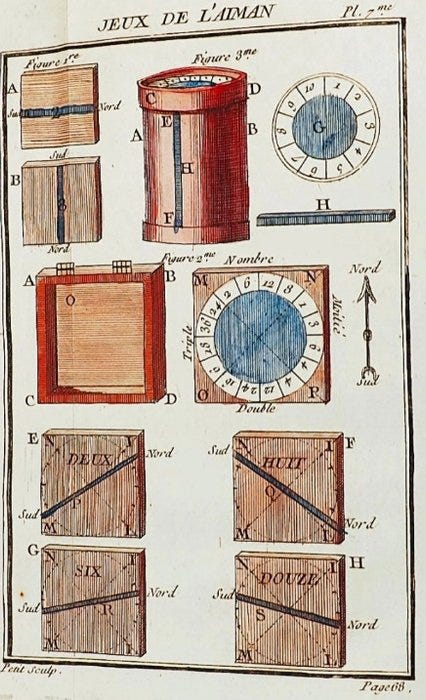 JEUX DE L'AIMAN
Pl. 7.me
Figure 1.re
Figure 3.me
A
Sud
Nord
C
D
E
A
B
H
F
10 1 2 3 4 5 6 7 8 9
G
H
Sud
B
Nord
Figure 2.me
Nombre
A
B
O
C
D
M
N
O
P
Triple
Moitié
Double
Nord
Sud
E
N
I
DEUX
Nord
Sud
P
M
L
F
N
I
HUIT
Sud
Q
Nord
M
L
G
N
I
SIX
Nord
Sud
R
M
L
H
N
I
DOUZE
Sud
S
Nord
M
L
Petit Sculp.
Page 68.